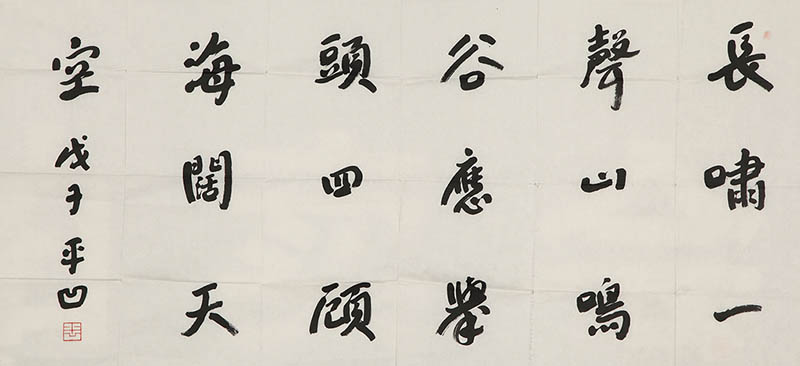 長嘯一
聲山鳴
谷應舉
頭四顧
海闊天
空 戊子 平凹